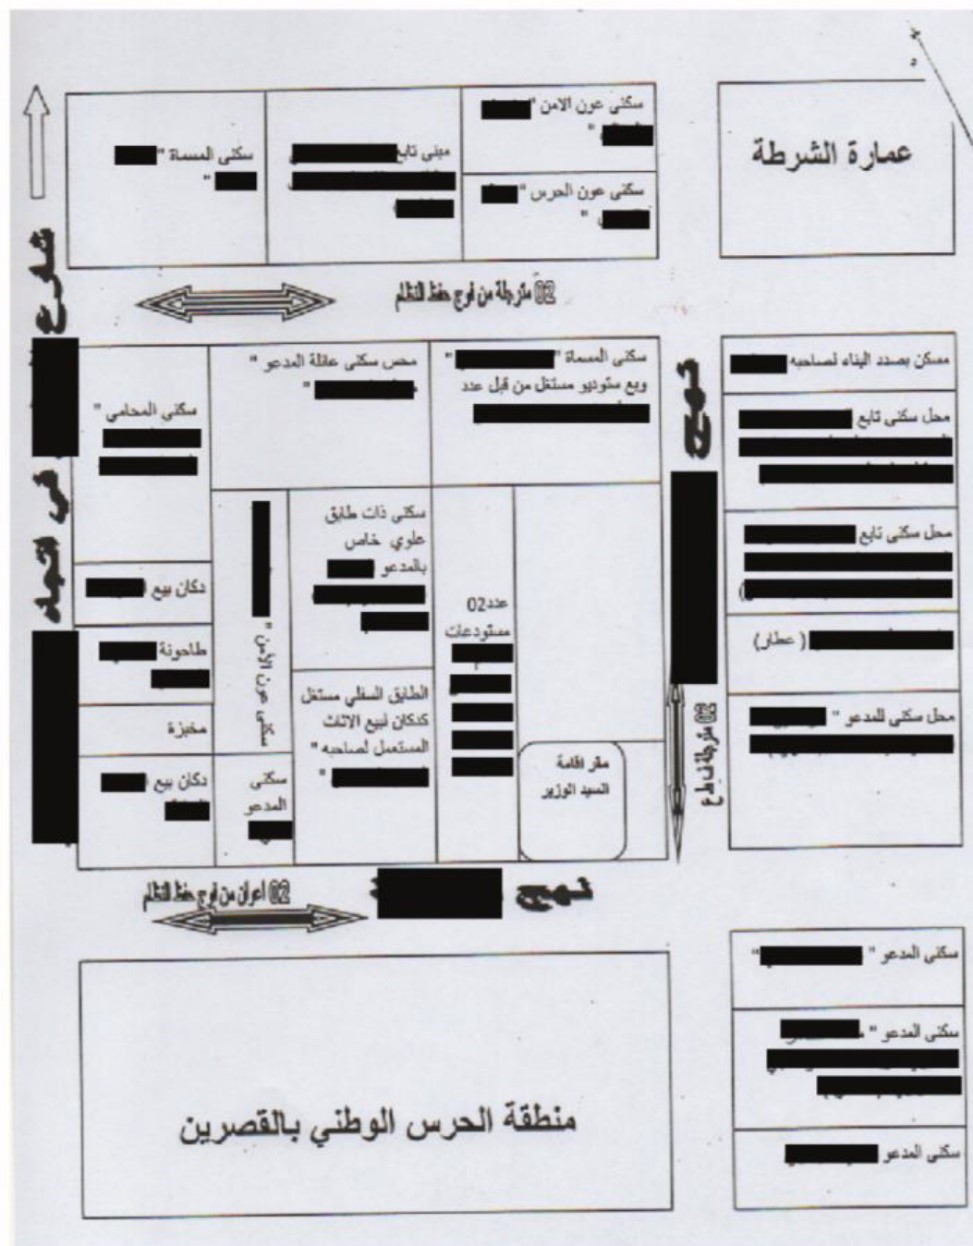 عمارة الشرطة
سكنى عون الامن "
"
سكنى عون الحرس "
"
مبنى تابع
سكنى المسماة "
"
02 مترجلة من فوج حفظ النظام
شارع
في اتجاه
نهج
مسكن بصدد البناء لصاحبه
محل سكنى تابع
محل سكنى تابع
( عطار)
محل سكنى للمدعو "
سكنى المسماة "
وبع ستوديو مستغل من قبل عدد
محس سكنى عائلة المدعو "
"
سكنى المحامي "
سكنى ذات طابق
علوي خاص
بالمدعو
عدد02
مستودعات
سكنى عون الأمن "
دكان بيع
طاحونة
مخبزة
دكان بيع
سكنى
المدعو
الطابق السفلي مستغل
كدكان لبيع الاثاث
المستعمل لصاحبه "
"
مقر اقامة
السيد الوزير
02 مترجلة
نهج
02 اعوان من فوج حفظ النظام
سكنى المدعو " "
سكنى المدعو "
سكنى المدعو
منطقة الحرس الوطني بالقصرين